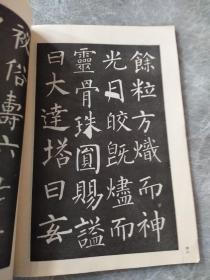 餘粒方熾而神
光月皎既燼而
靈骨珠圓賜謚
曰大達塔曰玄
被俗壽六